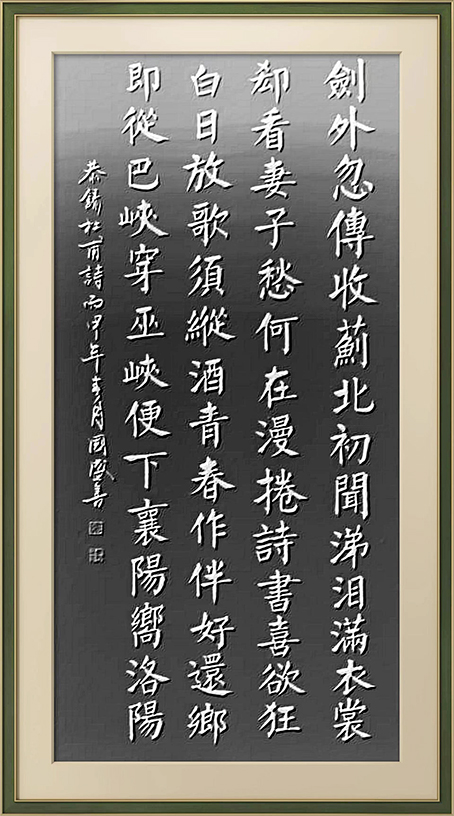 劍外忽傳收薊北初聞涕泪滿衣裳
却看妻子愁何在漫捲詩書喜欲狂
白日放歌須縱酒青春作伴好還鄉
即從巴峽穿巫峽便下襄陽嚮洛陽
恭錄杜甫詩丙申年月國盛書